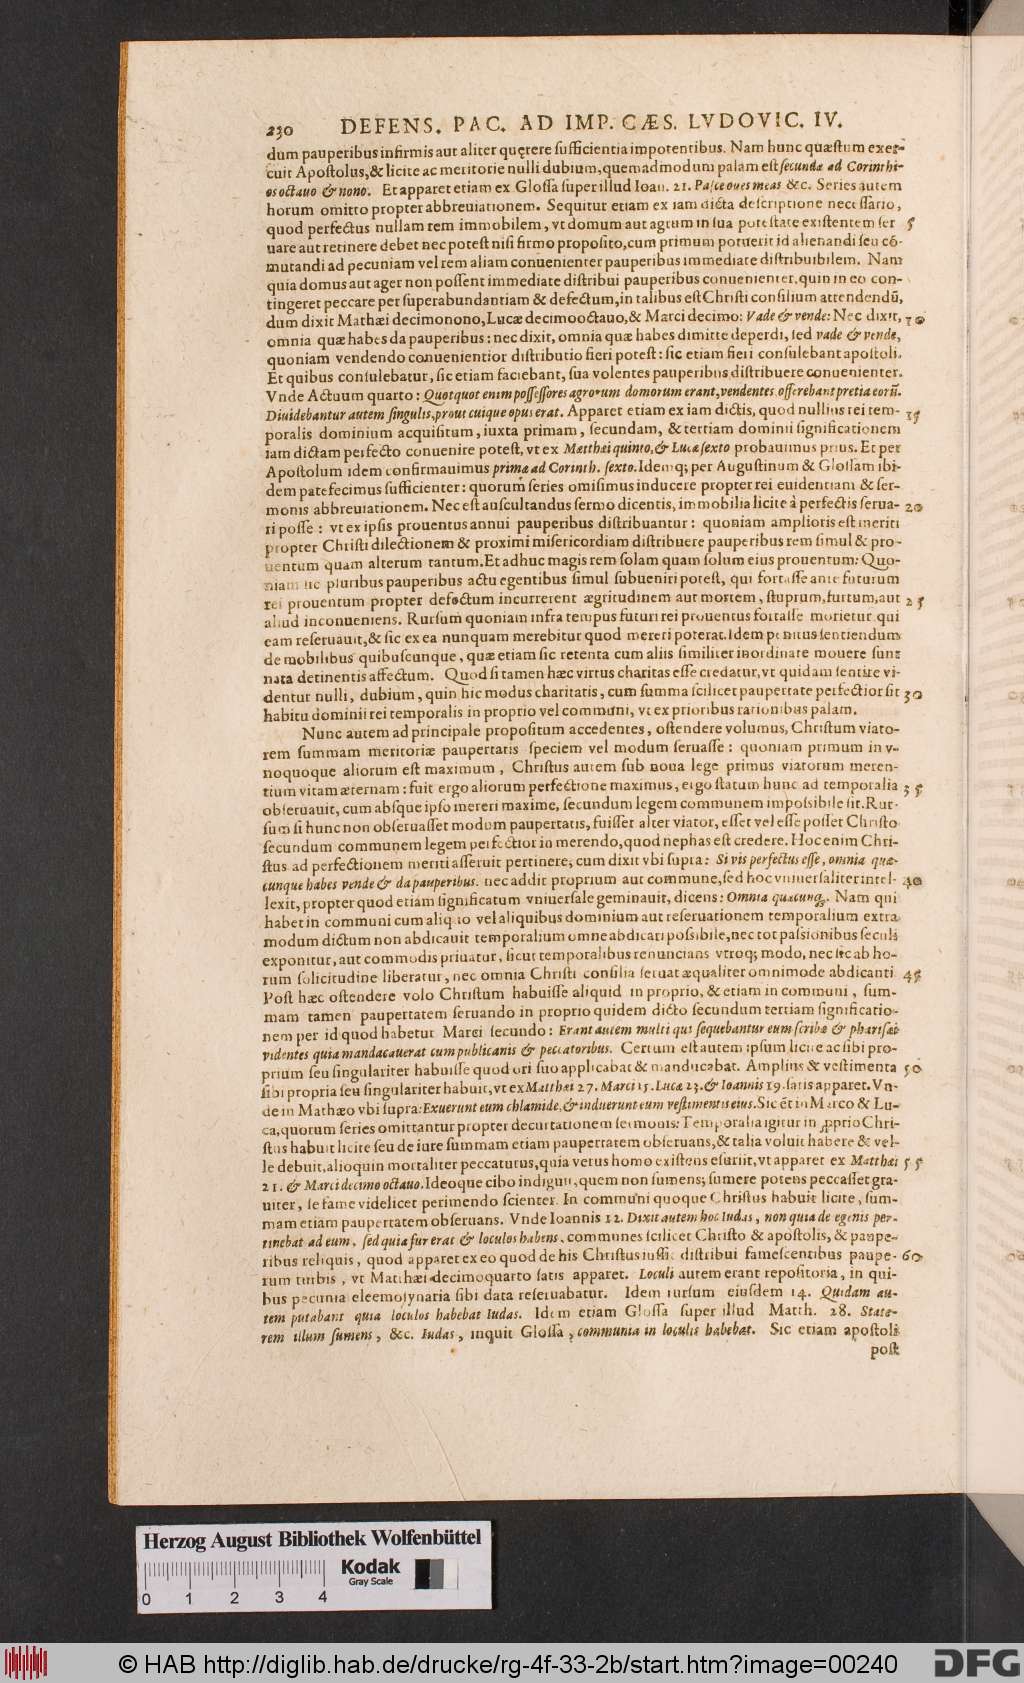 230 DEFENS. PAC. AD IMP. CÆS. LVDOVIC. IV.
dum pauperibus infirmis aut aliter quęrere sufficientia impotentibus. Nam hunc quæstum exer-
cuit Apostolus, & licite ac meritorie nulli dubium, quemadmodum palam est secundæ ad Corinthi-
os octauo & nono. Et apparet etiam ex Glossa super illud Ioan. 21. Pasce oues meas &c. Series autem
horum omitto propter abbreuiationem. Sequitur etiam ex iam dicta descriptione necessario,
quod perfectus nullam rem immobilem, vt domum aut agrum in sua potestate existentem ser 5
uare aut retinere debet nec potest nisi firmo proposito, cum primum potuerit id alienandi seu cō-
mutandi ad pecuniam vel rem aliam conuenienter pauperibus immediate distribuibilem. Nam
quia domus aut ager non possent immediate distribui pauperibus conuenienter, quin in eo con-
tingeret peccare per superabundantiam & defectum, in talibus est Christi consilium attendendū,
dum dixit Mathæi decimonono, Lucæ decimooctauo, & Marci decimo: Vade & vende: Nec dixit, 10
omnia quæ habes da pauperibus: nec dixit, omnia quæ habes dimitte deperdi, sed vade & vende,
quoniam vendendo conuenientior distributio fieri potest: sic etiam fieri consulebant apostoli.
Et quibus consulebatur, sic etiam faciebant, sua volentes pauperibus distribuere conuenienter.
Vnde Actuum quarto: Quotquot enim possessores agrorum domorum erant, vendentes offerebant pretia eorū.
Diuidebantur autem singulis, prout cuique opus erat. Apparet etiam ex iam dictis, quod nullius rei tem- 15
poralis dominium acquisitum, iuxta primam, secundam, & tertiam dominii significationem
iam dictam perfecto conuenire potest, vt ex Matthæi quinto, & Lucæ sexto probauimus prius. Et per
Apostolum idem confirmauimus primæ ad Corinth. sexto. Idemq; per Augustinum & Glossam ibi-
dem patefecimus sufficienter: quorum series omisimus inducere propter rei euidentiam & ser-
monis abbreuiationem. Nec est auscultandus sermo dicentis, immobilia licite à perfectis serua- 20
ri posse: vt ex ipsis prouentus annui pauperibus distribuantur: quoniam amplioris est meriti
propter Christi dilectionem & proximi misericordiam distribuere pauperibus rem simul & pro-
uentum quam alterum tantum. Et adhuc magis rem solam quam solum eius prouentum: Quo-
niam sic pluribus pauperibus actu egentibus simul subueniri potest, qui fortasse ante futurum
rei prouentum propter defectum incurrerent ægritudinem aut mortem, stuprum, furtum, aut 25
aliud inconueniens. Rursum quoniam infra tempus futuri rei prouentus fortasse morietur qui
eam reseruauit, & sic ex ea nunquam merebitur quod mereri poterat. Idem penitus sentiendum
de mobilibus quibuscunque, quæ etiam sic retenta cum aliis similiter inordinate mouere sunt
nata detinentis affectum. Quod si tamen hæc virtus charitas esse credatur, vt quidam sentire vi-
dentur nulli, dubium, quin hic modus charitatis, cum summa scilicet paupertate perfectior sit 30
habitu dominii rei temporalis in proprio vel communi, vt ex prioribus rationibus palam.
Nunc autem ad principale propositum accedentes, ostendere volumus, Christum viato-
rem summam meritoriæ paupertatis speciem vel modum seruasse: quoniam primum in v-
noquoque aliorum est maximum, Christus autem sub noua lege primus viatorum meren-
tium vitam æternam: fuit ergo aliorum perfectione maximus, ergo statum hunc ad temporalia 35
obseruauit, cum absque ipso mereri maxime, secundum legem communem impossibile sit. Rur-
sum si hunc non obseruasset modum paupertatis, fuisset alter viator, esset vel esse posset Christo
secundum communem legem perfectior in merendo, quod nephas est credere. Hoc enim Chri-
stus ad perfectionem meriti asseruit pertinere, cum dixit vbi supra: Si vis perfectus esse, omnia quæ-
cunque habes vende & da pauperibus. nec addit proprium aut commune, sed hoc vniuersaliter intel- 40
lexit, propter quod etiam significatum vniuersale geminauit, dicens: Omnia quæcunq;. Nam qui
habet in communi cum aliquo vel aliquibus dominium aut reseruationem temporalium extra
modum dictum non abdicauit temporalium omne abdicari possibile, nec tot passionibus seculi
exponitur, aut commodis priuatur, sicut temporalibus renuncians vtroq; modo, nec sic ab ho-
rum solicitudine liberatur, nec omnia Christi consilia seruat æqualiter omnimode abdicanti. 45
Post hæc ostendere volo Christum habuisse aliquid in proprio, & etiam in communi, sum-
mam tamen paupertatem seruando in proprio quidem dicto secundum tertiam significatio-
nem per id quod habetur Marci secundo: Erant autem multi qui sequebantur eum scribæ & pharisæi
videntes quia manducauerat cum publicanis & peccatoribus. Certum est autem ipsum licite ac sibi pro-
prium seu singulariter habuisse quod ori suo applicabat & manducabat. Amplius & vestimenta 50
sibi propria seu singulariter habuit, vt ex Matthæi 27. Marci 15. Lucæ 23. & Ioannis 19. satis apparet. Vn-
de in Mathæo vbi supra: Exuerunt eum chlamide, & induerunt eum vestimentis eius. Sic ēt in Marco & Lu-
ca, quorum series omittantur propter decurtationem sermonis: Temporalia igitur in ꝓprio Chri-
stus habuit licite seu de iure summam etiam paupertatem obseruans, & talia voluit habere & vel-
le debuit, alioquin mortaliter peccaturus, quia verus homo existens esuriit, vt apparet ex Matthæi 55
21. & Marci decimo octauo. Ideoque cibo indiguit, quem non sumens; sumere potens peccasset gra-
uiter, se fame videlicet perimendo scienter. In communi quoque Christus habuit licite, sum-
mam etiam paupertatem obseruans. Vnde Ioannis 12. Dixit autem hoc Iudas, non quia de egenis per-
tinebat ad eum, sed quia fur erat & loculos habens, communes scilicet Christo & apostolis, & paupe-
ribus reliquis, quod apparet ex eo quod de his Christus iussit distribui famescentibus paupe- 60
rum turbis, vt Matthæi decimoquarto satis apparet. Loculi autem erant repositoria, in qui-
bus pecunia eleemosynaria sibi data reseruabatur. Idem rursum eiusdem 14. Quidam au-
tem putabant quia loculos habebat Iudas. Idem etiam Glossa super illud Matth. 28. State-
rem illum sumens, &c. Iudas, inquit Glossa, communia in loculis habebat. Sic etiam apostoli
post
Herzog August Bibliothek Wolfenbüttel
Kodak
Gray Scale
0 1 2 3 4
© HAB http://diglib.hab.de/drucke/rg-4f-33-2b/start.htm?image=00240
DFG